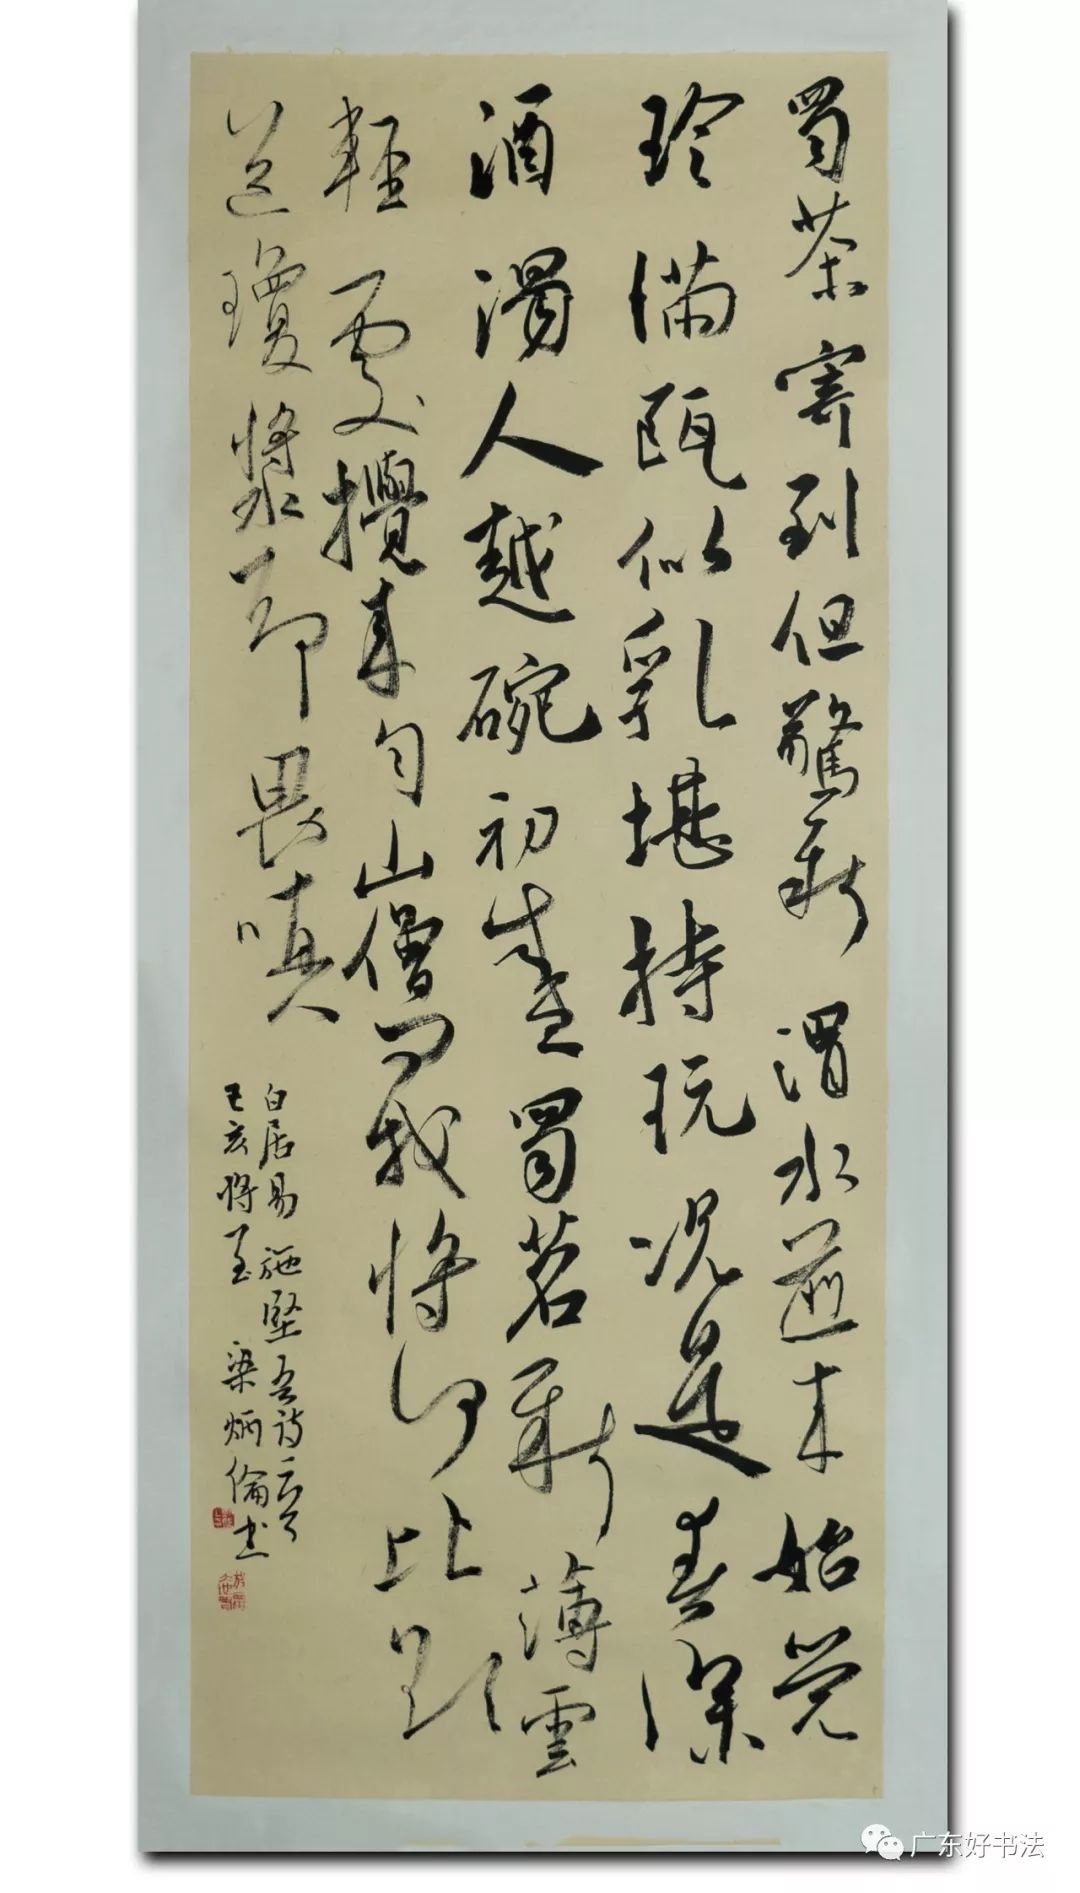 蜀茶寄到但驚新渭水煎来始觉
珍满瓯似乳堪持玩况是春深
酒渴人越碗初盛蜀茗新薄雲
輕處攪来匀山僧問我将何比欲
道瓊漿却畏嗔
白居易施坚吾诗二首
己亥将至梁炳倫书
广东好书法